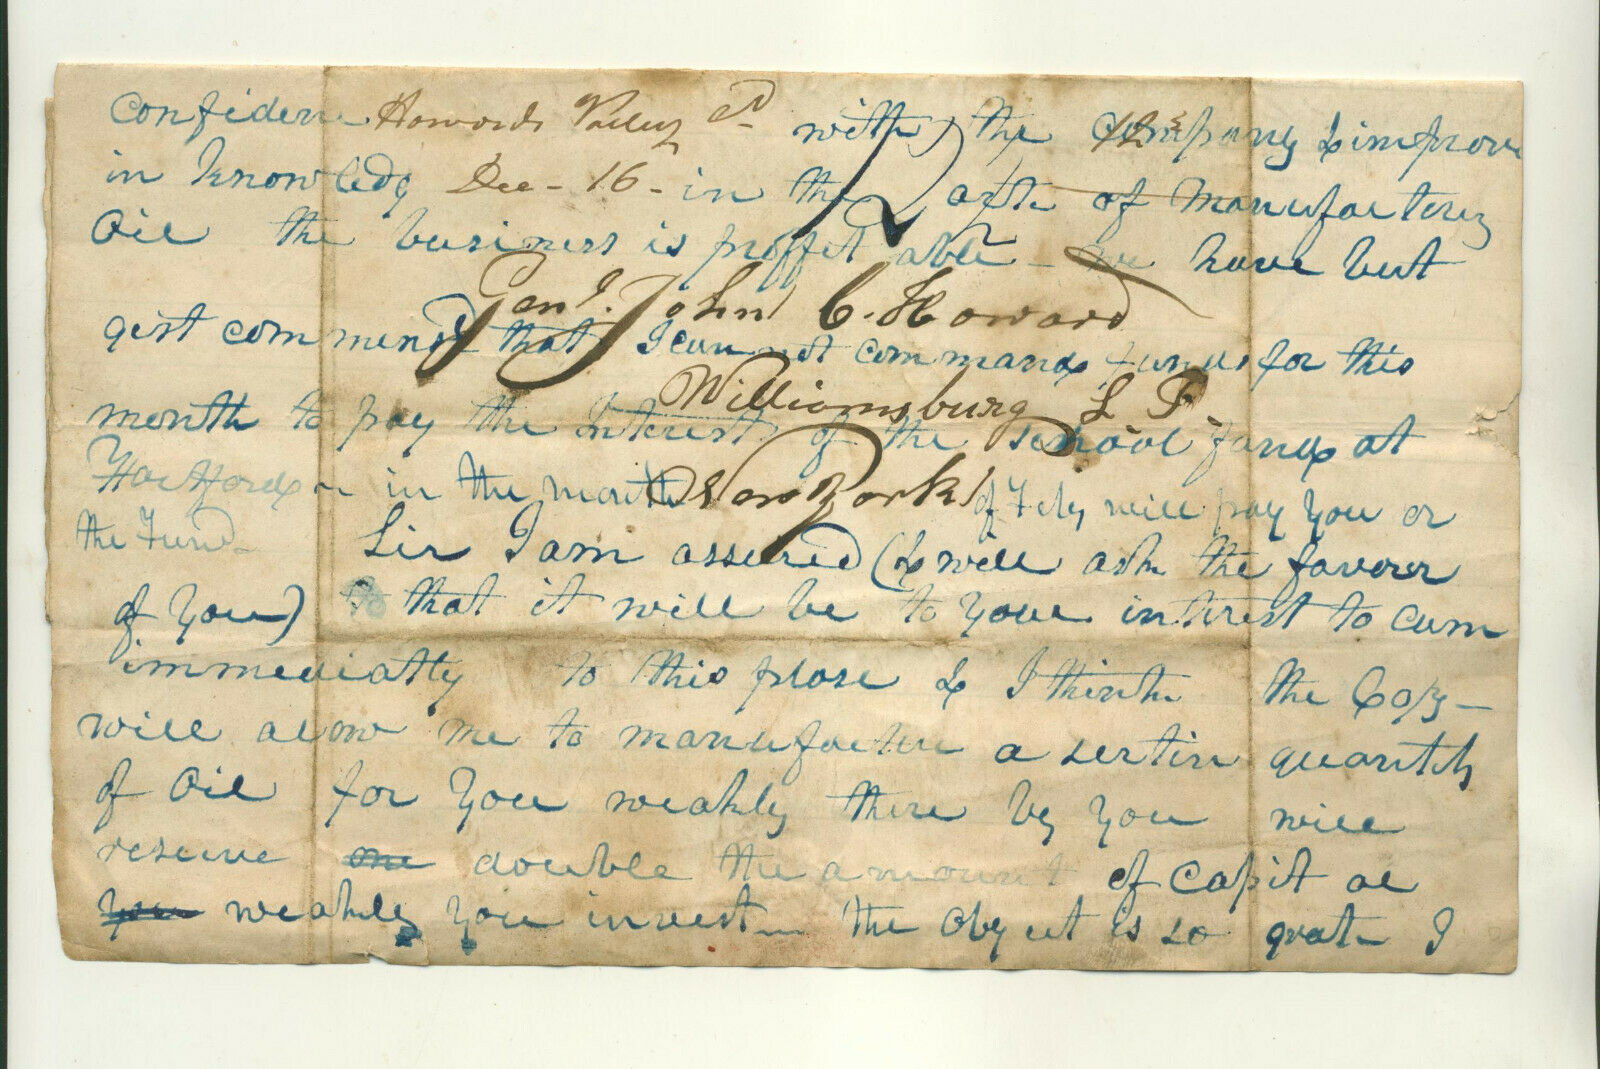 Confidenc Howards Valley Ct with the Company & improve
12½
in knowledg Dec - 16 - in the arte of manufactory
Oil the business is proffit able - we have but
Genl. John C. Howard
gest commensd that I can not command funds for this
Williamsburg L I.
month to pay the Interest of the school fund at
Hartford in the month of Feby will pay You or
New York
the Fund -
Sir I am assured (& will ask the favour
of You) that it will be to Your intrest to cum
immediatly to this plase & I think the Copy -
will alow me to manufacture a sertin quantity
of Oil for You weakly there by You will
reseive one double the amount of Capit al
you weakly You invest - the Object is so grate I